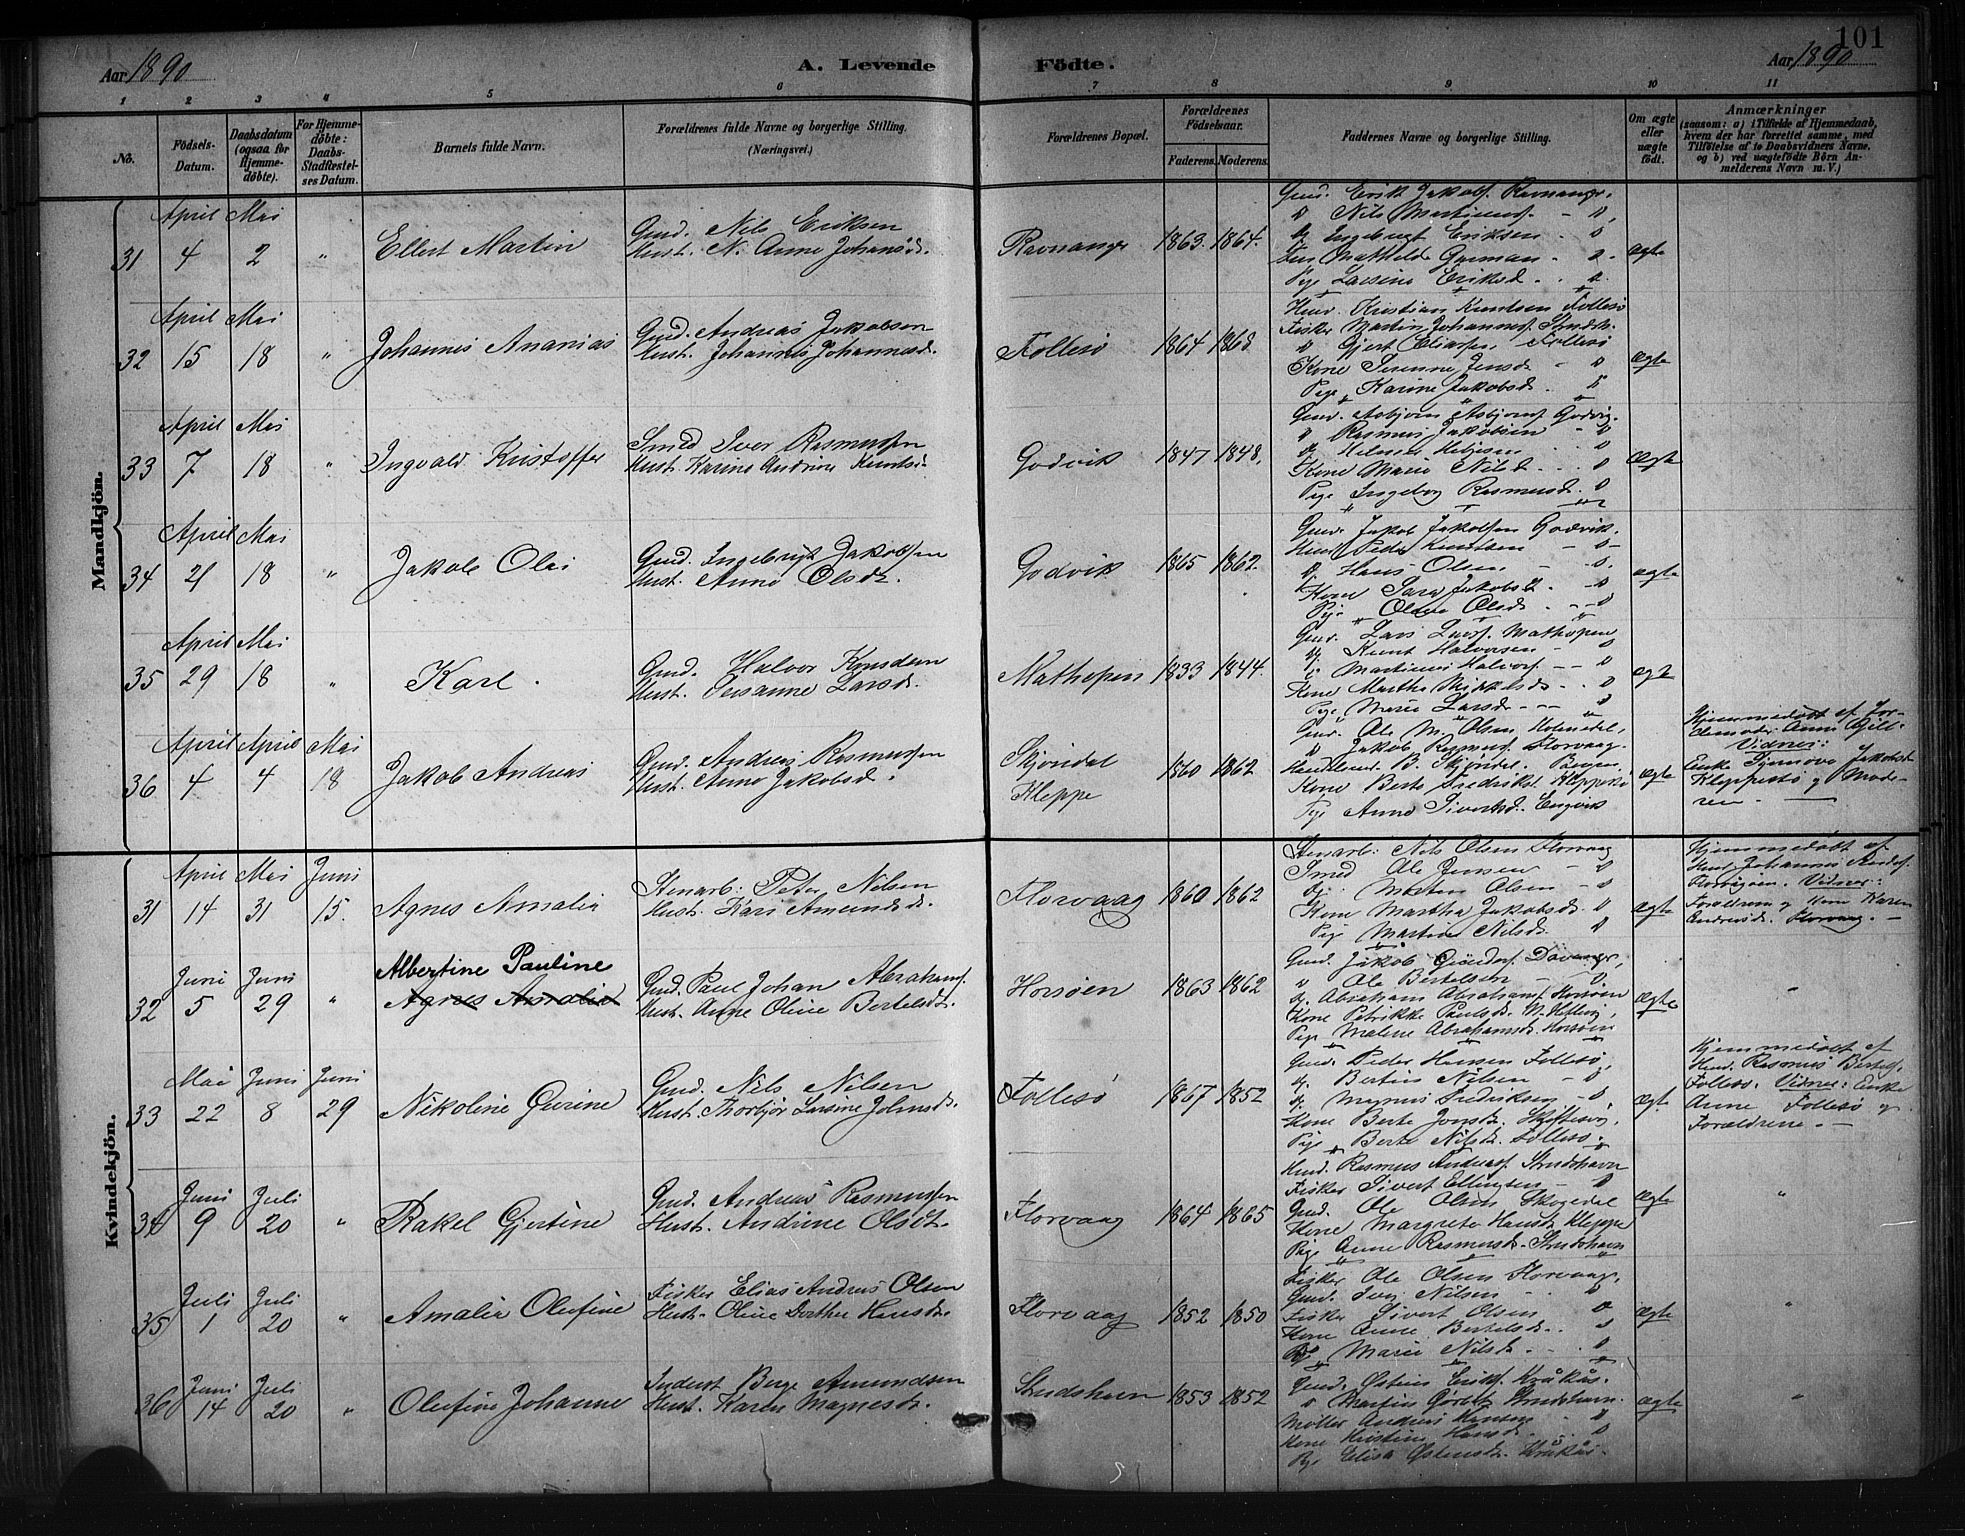 101
Aar 1890
A. Levende Födte.
Aar 1890
1 2 3 4 5 6 7 8 9 10 11
No.
Födsels-Datum.
Daabsdatum (ogsaa for Hjemme-döbte).
For Hjemme-döbte: Daabs-Stadfæstel-ses Datum.
Barnets fulde Navn.
Forældrenes fulde Navne og borgerlige Stilling. (Næringsvei.)
Forældrenes Bopæl.
Forældrenes Födselsaar.
Faderens. Moderens.
Faddernes Navne og borgerlige Stilling.
Om ægte eller uægte födt.
Anmærkninger
(saasom: a) i Tilfælde af Hjemmedaab, hvem der har forrettet samme, med Tilföielse af to Daabsvidners Navne, og b) ved uægtefödte Börn An-melderens Navn m. V.)
Mandkjön.
31 April 4 Mai 2 "
Ellert Martin
Gmd. Nils Eriksen
Hust. N. Anne Johansd.
Ravnanger 1863. 1864.
Gmd. Erik Jakobs. Ravnanger,
" Nils Martinus. - "
" Ingebrigt Eriksen - "
Mathilde Garman - "
Pige Larsine Eriksd. - "
ægte
32 April 15 Mai 18 "
Johannes Ananias
Gmd. Andreas Jakobsen
Hust. Johanne Johannesd.
Follesö 1864 1868
Husm. Kristian Knutsen Follesö
Fisker Martin Johannes. Strudsh.
" Gjert Eliassen Follesö
Kone Serenne Jensd. - "
Pige Karine Jakobsd. - "
Ægte
33 April 7 Mai 18 "
Ingvald Kristoffer
Smed Iver Rasmussen
Hust. Karine Andrine Knuts.
Godvik 1847 1848.
Gmd. Asbjörn Asbjörns. Godvig.
" Rasmus Jakobsen - "
Kone Marie Nilsd. - "
Pige Ingeborg Rasmusd. "
Ægte
34 April 21 Mai 18 "
Jakob Olai
Gmd. Ingebrigt Jakobsen
Hust. Anne Olsdt.
Godvik 1865 1862.
Gmd. Jakob Jakobsen Godvik.
Peder Knutsen - " -
" Hans Olsen - "
Kone Sara Jakobsd. - "
Pige Olava Olsd. - "
ægte
35 April 29 Mai 18 "
Karl.
Gmd. Halvor Knudsen
Hust. Susanne Larsd.
Mathopen 1833 1844.
Gmd. Lars Lars. Mathopen
" Knut Halvorsen - "
" Martinus Halvors. - "
Kone Martha Mikkelsd. - "
Pige Marie Larsd. - "
ægte
36 April 4 April 4 Mai 18
Jakob Andreas
Gmd. Andreas Rasmussen
Hust. Anne Jakobsd.
Skjöndal
Kleppe
1860 1862
Gmd. Ole M. Olsen
" Jakob Rasmus. Florvaag.
B. Skjöndal. Bergen
Kone Berte Fredriksd. Kleppesö
Pige Anne Siversd. Engvik
ægte
Hjemmedöbt af Jor-
demoder Anna
Vidner:
Enke Synnöve Jakobsd.
Kleppestö og Mode-
ren. -
Kvindekjön.
31 April 14 Mai 31 Juni 15.
Agnes Amalia
Stenarb: Peter Nilsen
Hust. Kari Amundsd.
Florvaag 1860 1862
Stenarb: Nils Olsen Florvaag
Smed Ole Jensen - "
Martin Olsen - "
Kone Martha Jakobsd. "
Pige Martine Nilsd. "
ægte
Hjemmedöbt af
Johannes
Vidner:
Forældrene og Kone Karen
Andreasd. Florvaag. -
32 Juni 5 Juni 29 "
Albertine Pauline
Agnes Amalia
Gmd. Paul Johan Abrahams.
Hust. Anne Oline Bertelsdt.
Horsöen 1863 1862
Gmd. Jakob
" Ole Bertelsen - "
" Abraham Abrahams. Horsöen
Kone Petrikke Paulsd.
Pige Malene Abrahamsd. Horsöen
Ægte "
33 Mai 22 Juni 8 Juni 29
Nikoline Gurine
Gmd. Nils Nilsen
Hust. Thorbjör Larsine Johnsd.
Follesö 1867 1852
Gmd. Peder Hansen Follesö,
" Bertin Nilsen - "
" Magnus Fredriksen - "
Kone Berte Jonsdt.
Pige Berte Nilsdt. Follesö.
ægt.
Hjemmedöbt af
Rasmus Bertels.
Follesö. Vidner: Enke
Anne Follesö og
Forældrene. -
34 Juni 9 Juli 20 "
Rakel Gjertine
Gmd. Andreas Rasmussen
Hust. Andrine Olsdt.
Florvaag 1864 1865
Rasmus Anders. Strudshavn
Fisker Sivert Ellingsen - "
Gmd. Ole Olsen Skogedal
Kone Margrete Hansdt. Kleppe
Pige Anne Rasmusd. Strudshavn
Ægte "
35 Juli 1 Juli 20 "
Amalia Olufine
Fisker Elias Andreas Olsen
Hust. Oline Dorthea Hansdt.
Florvaag 1852 1850
Fisker Ole Olsen Florvaag.
Gmd. Iver Nilsen - "
Fisker Sivert Olsen "
Kone Anne Bertelsdt. - "
Marie Nilsdt. - "
ægte "
36 Juni 14 Juli 20 "
Olufine Johanne
Inderst Berge Amundsen
Hust. Karen Magnesdt.
Strudshavn 1853 1852
Gmd. Östen Eriks. Kråkås.
" Martin Strudshavn.
Möller Andreas Hansen - "
Kone Kristine Hansd. - "
Pige Elisa Östensdt. Kråkås.
ægte "